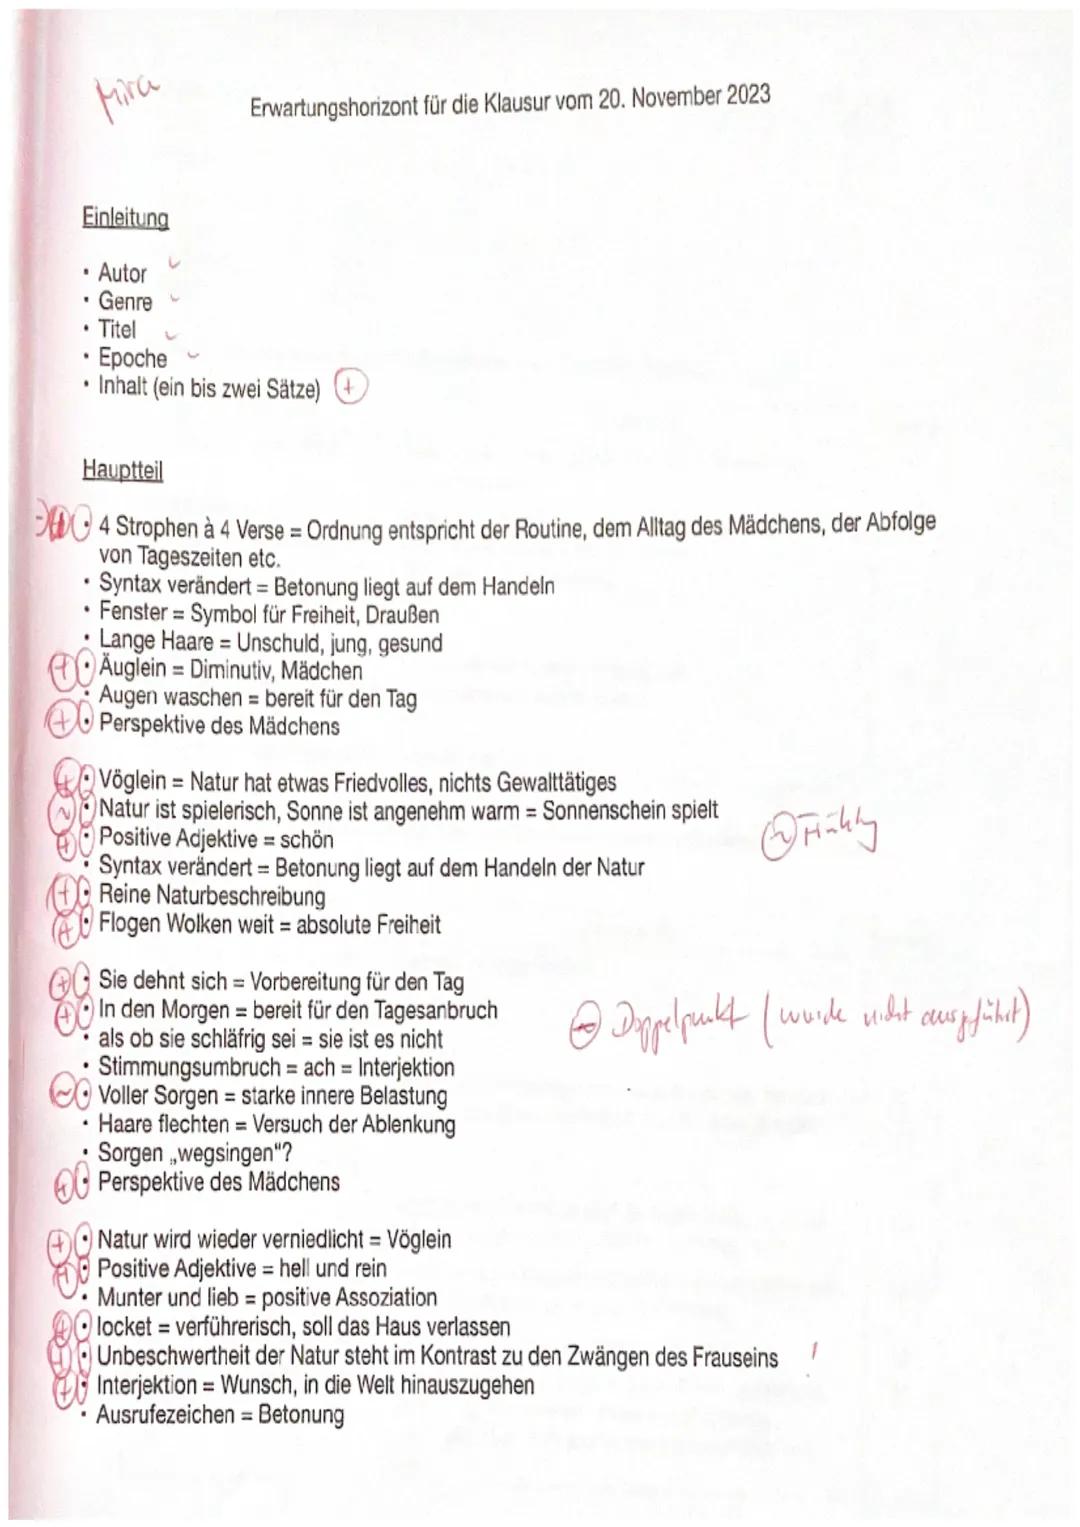 Mira
Erwartungshorizont für die Klausur vom 20. November 2023
Einleitung
• Autor
• Genre
• Titel
• Epoche
• Inhalt (ein bis zwei Sätze) +
Hauptteil
• 4 Strophen à 4 Verse = Ordnung entspricht der Routine, dem Alltag des Mädchens, der Abfolge
von Tageszeiten etc.
• Syntax verändert = Betonung liegt auf dem Handeln
• Fenster = Symbol für Freiheit, Draußen
• Lange Haare = Unschuld, jung, gesund
+ • Äuglein = Diminutiv, Mädchen
• Augen waschen = bereit für den Tag
+ • Perspektive des Mädchens
+ • Vöglein = Natur hat etwas Friedvolles, nichts Gewalttätiges
~ • Natur ist spielerisch, Sonne ist angenehm warm = Sonnenschein spielt
+ • Positive Adjektive = schön
• Syntax verändert = Betonung liegt auf dem Handeln der Natur
+ • Reine Naturbeschreibung
+ • Flogen Wolken weit = absolute Freiheit
+ • Sie dehnt sich = Vorbereitung für den Tag
+ • In den Morgen = bereit für den Tagesanbruch
Doppelpunkt (wurde nicht ausgeführt)
• als ob sie schläfrig sei = sie ist es nicht
• Stimmungsumbruch = ach = Interjektion
~ • Voller Sorgen = starke innere Belastung
• Haare flechten = Versuch der Ablenkung
• Sorgen „wegsingen“?
+ • Perspektive des Mädchens
+ • Natur wird wieder verniedlicht = Vöglein
+ • Positive Adjektive = hell und rein
• Munter und lieb = positive Assoziation
+ • locket = verführerisch, soll das Haus verlassen
+ • Unbeschwertheit der Natur steht im Kontrast zu den Zwängen des Frauseins !
+ • Interjektion = Wunsch, in die Welt hinauszugehen
• Ausrufezeichen = Betonung